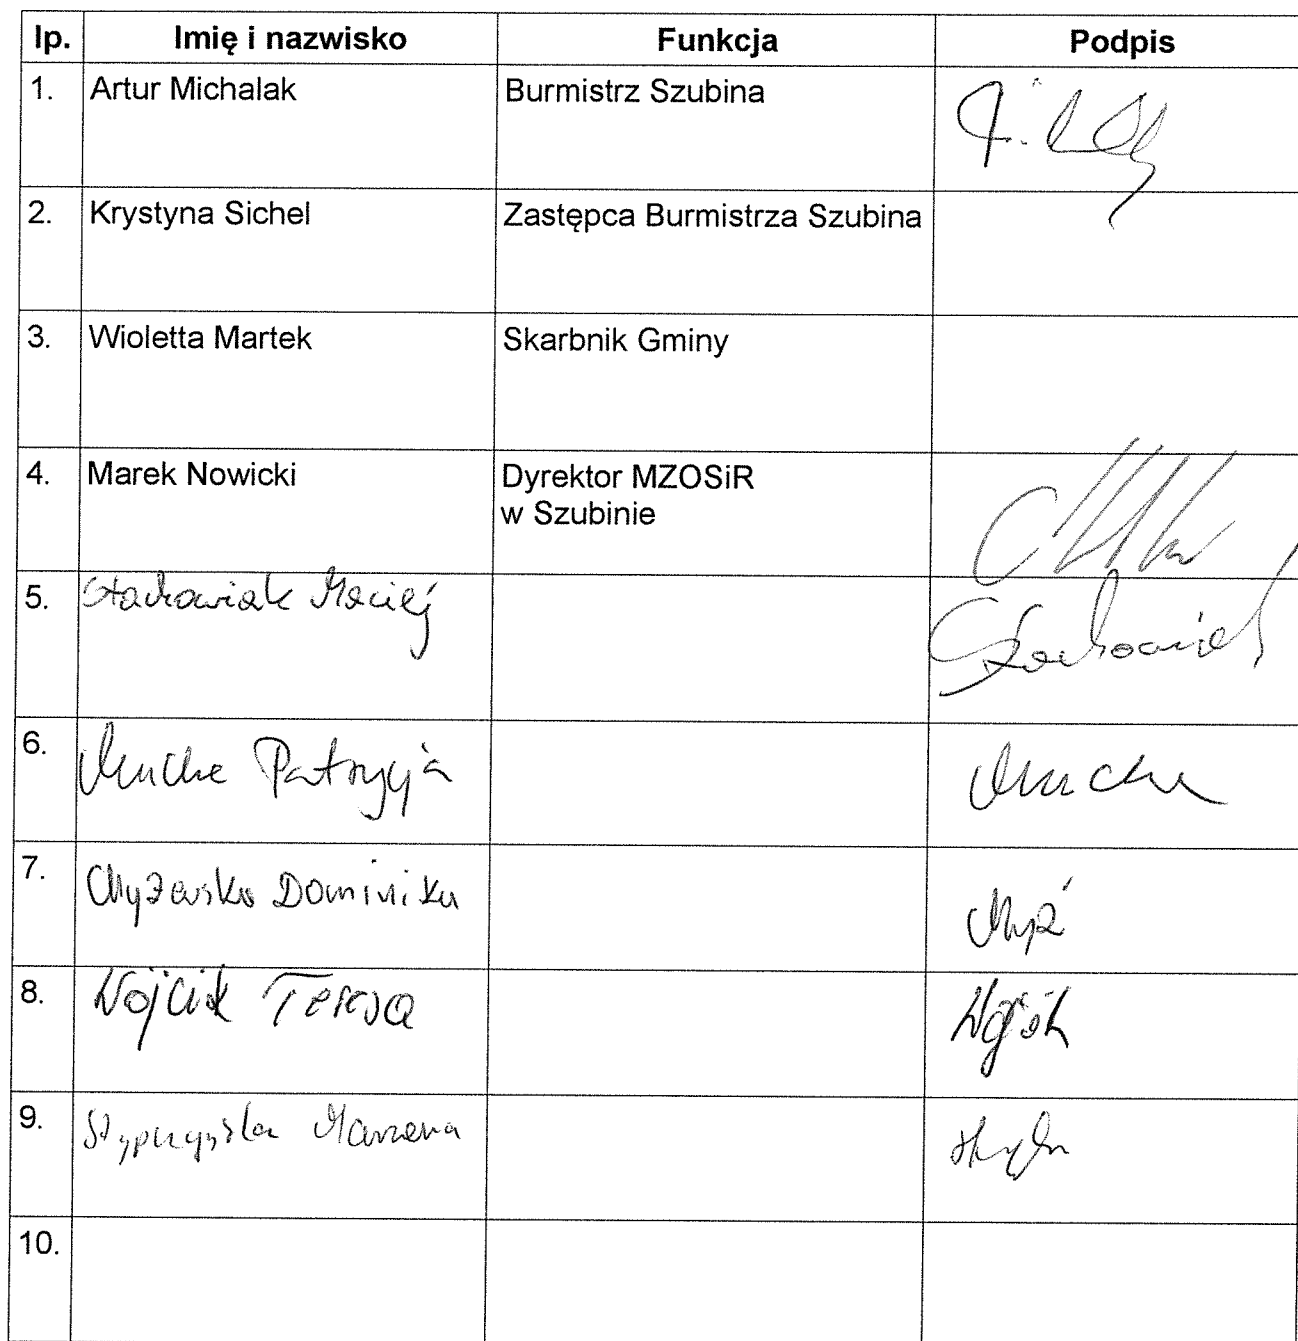 lp. Imię i nazwisko Funkcja Podpis
1. Artur Michalak Burmistrz Szubina
2. Krystyna Sichel Zastępca Burmistrza Szubina
3. Wioletta Martek Skarbnik Gminy
4. Marek Nowicki Dyrektor MZOSiR
w Szubinie
5. Stachowiak Maciej Stachowiak
6. Mucha Patrycja Mucha
7. Chyżewska Dominika
8. Wójcik Teresa Wójcik
9. Marzena
10.